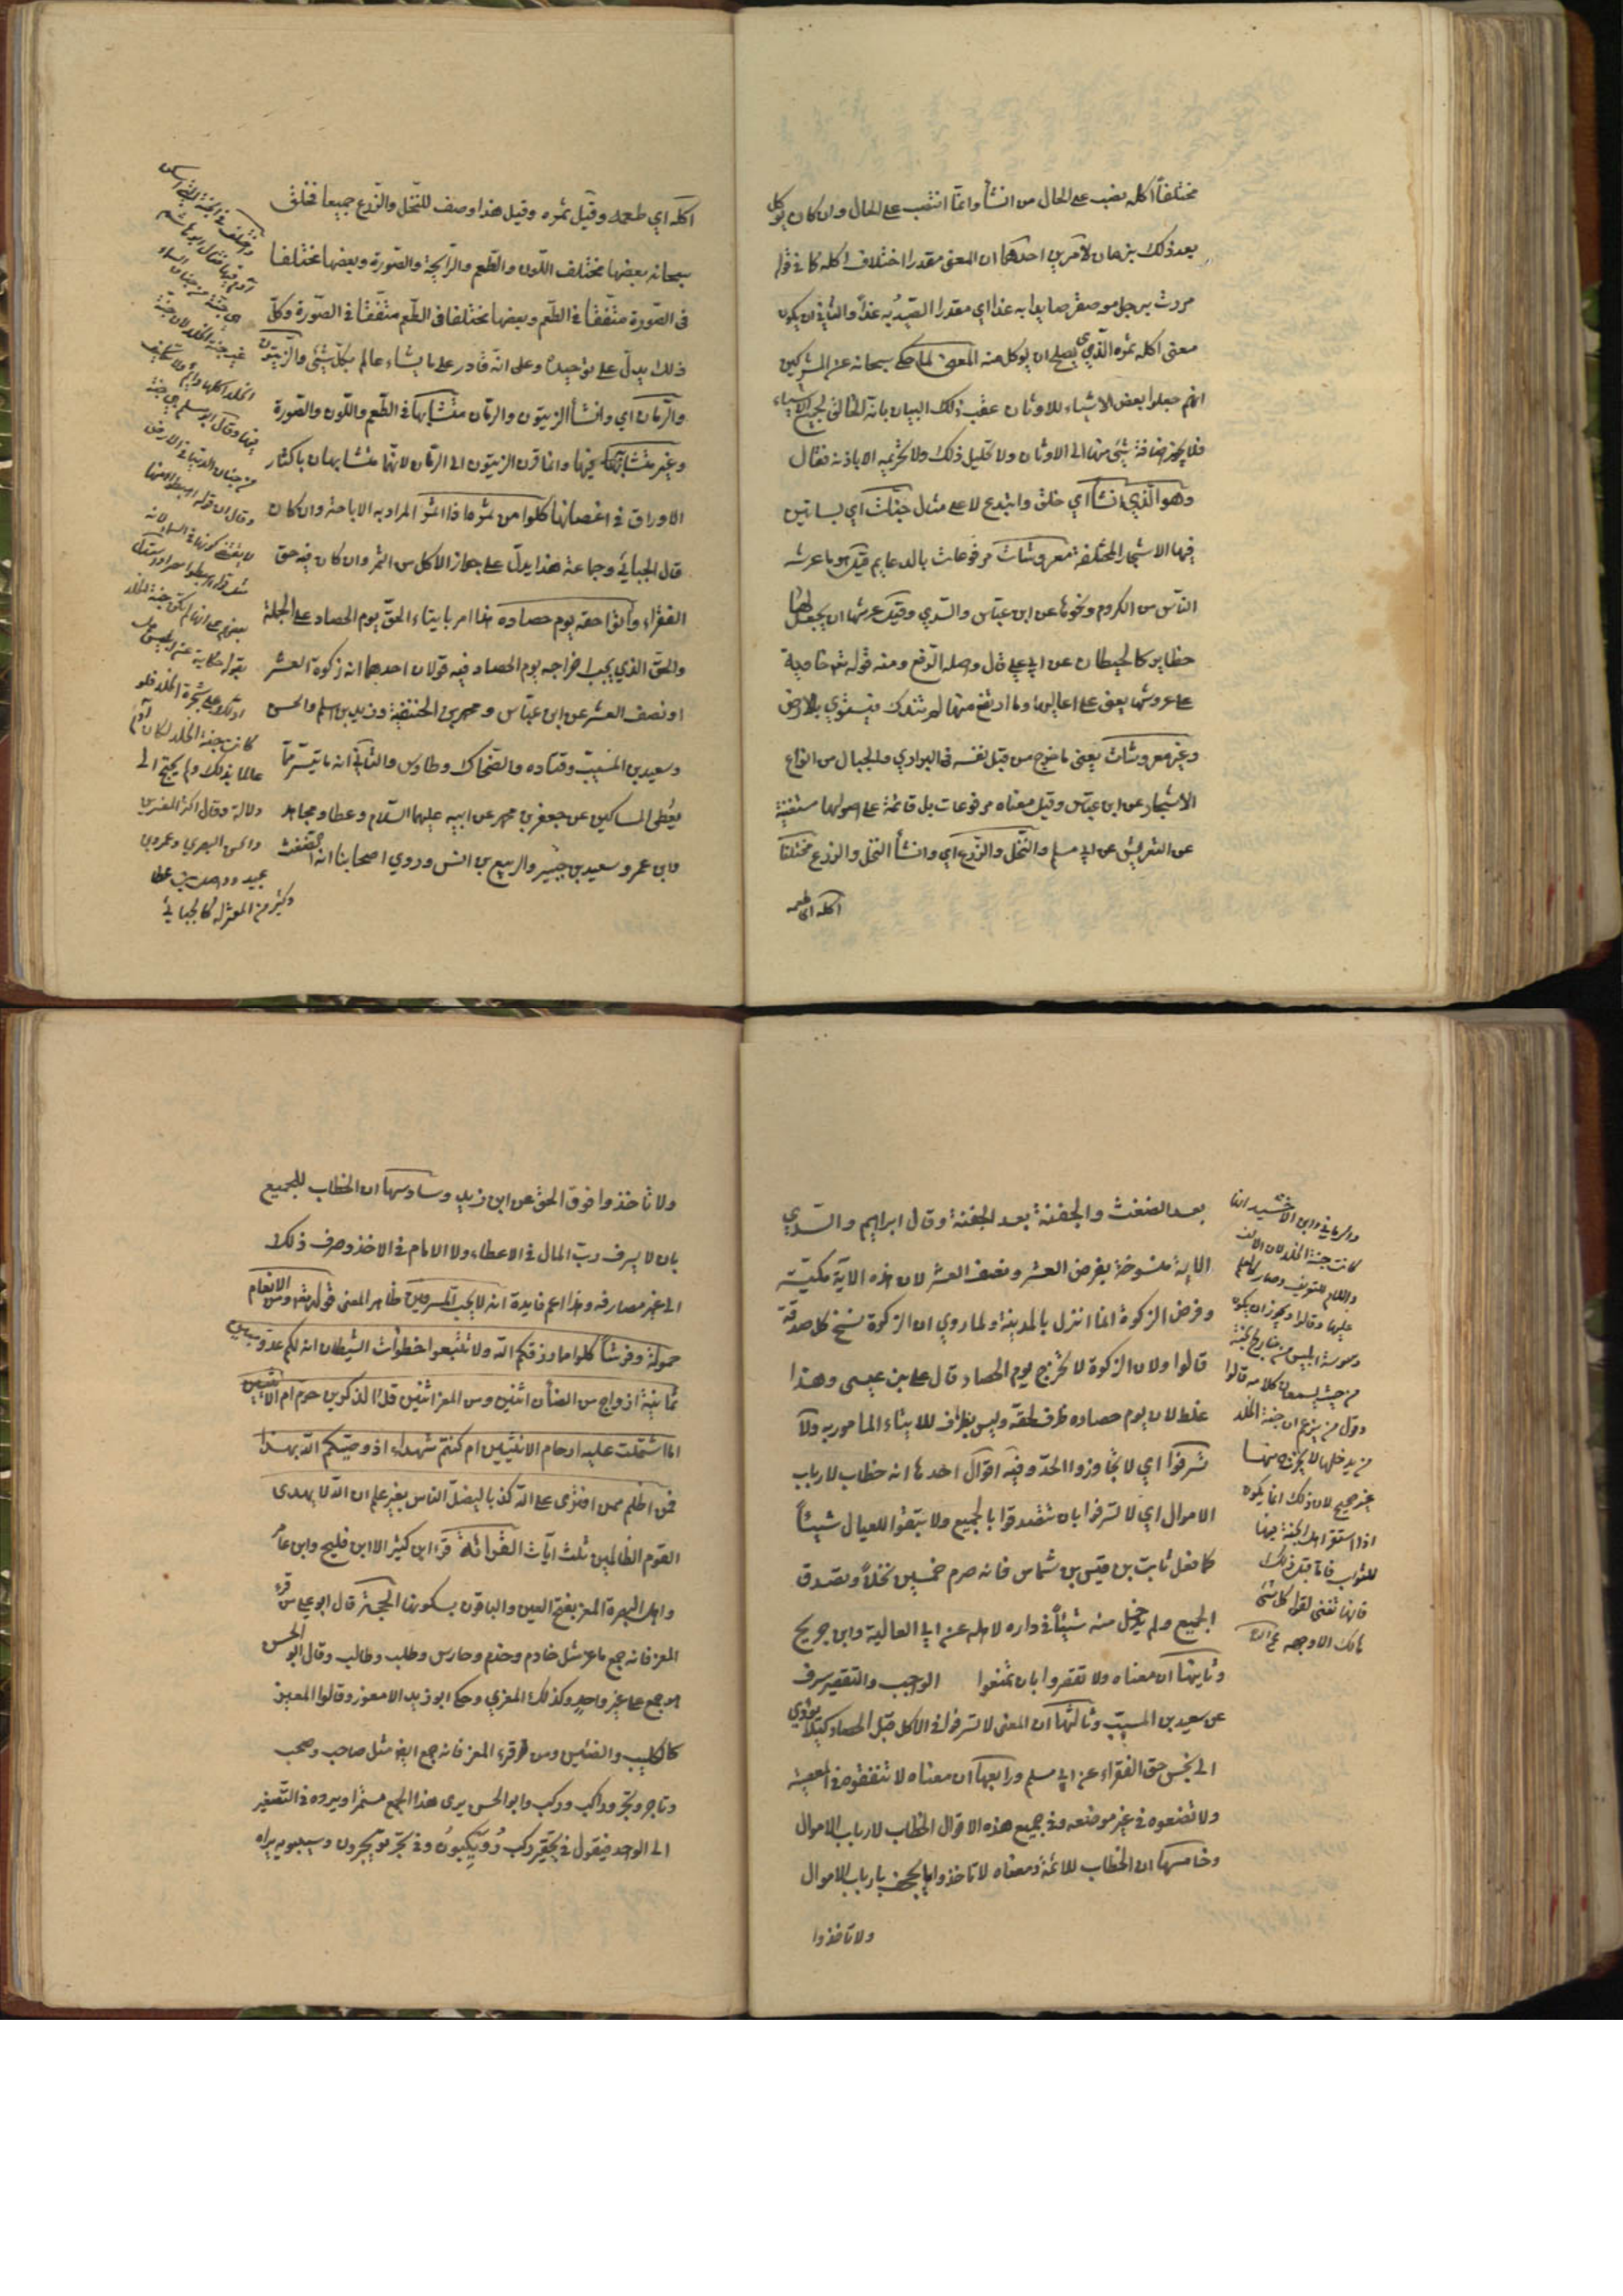 مختلفاً اكله نصب على الحال من انشأ وانما انتصب على الحال وان كان يوكل
بعد ذلك بزمان لامرين احدهما ان المعنى مقدرا اختلاف اكله كما في قوله
مررت برجل معه صقر صايدا به غدا اي مقدرا الصيد به غدا والثاني ان يكون
معنى اكله ثمره الذي يصلح ان يوكل منه المعنى لما حكى سبحانه عن المشركين
انهم جعلوا بعض الاشياء للاوثان عقب ذلك البيان بانه الخالق لجميع الاشياء
فلا يجوز اضافة شيء منها الى الاوثان ولا تحليل ذلك ولا تحريمه الا باذنه فقال
وهو الذي انشأ اي خلق وابتدع لا على مثال جنات اي بساتين
فيها الاشجار المختلفة معروشات مرفوعات بالدعايم قيل هو ما عرشه
الناس من الكروم ونحوها عن ابن عباس والسدي وقيل عرشها ان يجعل لها
حظاير كالحيطان عن ابي علي قال واصله الرفع ومنه قوله تعالى خاوية
على عروشها يعني على اعاليها وما ارتفع منها لم تندك فتستوي بالارض
وغير معروشات يعني ما خرج من قبل نفسه في البراري والجبال من انواع
الاشجار عن ابن عباس وقيل معناه مرفوعات بل قائمة على اصولها مستغنية
عن التعريش عن ابي مسلم والنخل والزرع اي وانشأ النخل والزرع مختلفا
اكله اي طعمه
اكله اي طعمه وقيل ثمره وقيل هذا وصف للنخل والزرع جميعا فخلق
سبحانه بعضها مختلف اللون والطعم والرايحة والصورة وبعضها مختلفا
في الصورة متفقا في الطعم وبعضها مختلفا في الطعم متفقا في الصورة وكل
ذلك يدل على توحيده وعلى انه قادر على ما يشاء عالم بكل شيء والزيتون
والرمان اي وانشأ الزيتون والرمان متشابها في الطعم واللون والصورة
وغير متشابه فيها وانما قرن الزيتون الى الرمان لانهما متشابهان باكتناز
الاوراق في اغصانها كلوا من ثمره اذا اثمر المراد به الاباحة وان كان
قال الجبائي وجماعة هذا يدل على جواز الاكل من الثمر وان كان فيه حق
الفقراء وآتوا حقه يوم حصاده هذا امر بايتاء الحق يوم الحصاد على الجملة
والحق الذي يجب اخراجه يوم الحصاد فيه قولان احدهما انه زكوة العشر
او نصف العشر عن ابن عباس ومحمد بن الحنفية وزيد بن اسلم والحسن
وسعيد بن المسيب وقتاده والضحاك وطاوس والثاني انه ما تيسر مما
يعطى المساكين عن جعفر بن محمد عن ابيه عليهما السلام وعطا ومجاهد
وابن عمر وسعيد بن جبير والربيع بن انس وروي اصحابنا انه الضغث
واختلف في الجنة التي اسكن
آدم فيها فقال ابو هاشم
هي جنة من جنان السماء
غير جنة الخلد لان جنة
الخلد اكلها دايم ولا تكليف
فيها وقال ابو مسلم هي جنة
من جنان الدنيا في الارض
وقال ان قوله اهبطوا منها
لا يقتضي كونها في السماء لانه
مثل قوله اهبطوا مصرا واستدل
بعضهم على انها لم تكن جنة الخلد
بقوله حكاية عن ابليس هل
ادلك على شجرة الخلد فلو
كانت جنة الخلد لكان آدم
عالما بذلك ولم يحتج الى
دلالة وقال اكثر المفسرين
والحسن البصري وعمرو بن
عبيد وواصل بن عطا
وكثير من المعتزلة كالجبائي
بعد الضغث والحفنة بعد الحفنة وقال ابراهيم والسدي
الاية منسوخة بفرض العشر ونصف العشر لان هذه الآية مكية
وفرض الزكوة انما انزل بالمدينة ولما روي ان الزكوة نسخ كل صدقة
قالوا ولان الزكوة لا تخرج يوم الحصاد قال علي بن عيسى وهذا
غلط لان يوم حصاده ظرف لحقه وليس بظرف للايتاء المامور به ولا
تسرفوا اي لا تجاوزوا الحد وفيه اقوال احدها انه خطاب لارباب
الاموال اي لا تسرفوا بان تتصدقوا بالجميع ولا تبقوا للعيال شيئاً
كما فعل ثابت بن قيس بن شماس فانه صرم خمسين نخلاً وتصدق
الجميع ولم يدخل منه شيئاً في داره لاهله عن ابي العالية وابن جريح
وثانيها ان معناه ولا تقصروا بان تمنعوا الواجب والتقصير سرف
عن سعيد بن المسيب وثالثها ان المعنى لا تسرفوا في الاكل قبل الحصاد كيلا يؤدي
الى بخس حق الفقراء عن ابي مسلم ورابعها ان معناه لا تنفقوه في المعصية
ولا تضعوه في غير موضعه وفي جميع هذه الاقوال الخطاب لارباب الاموال
وخامسها ان الخطاب للائمة ومعناه لا تاخذوا ما يجحف بارباب الاموال
ولا تاخذوا
والرماني وابن الاخشيد انها
كانت جنة الخلد لان الالف
واللام للتعريف وصار كالعلم
عليها وقالوا ويجوز ان يكون
وسوسة ابليس من خارج الجنة
من حيث يسمعان كلامه قالوا
وقول من يزعم ان جنة الخلد
من يدخلها لا يخرج منها
غير صحيح لان ذلك انما يكون
اذا استقر اهل الجنة فيها
للثواب فاما قبل ذلك
فانها تفنى لقوله كل شيء
هالك الا وجهه
ولا تاخذوا فوق الحق عن ابن زيد وسادسها ان الخطاب للجميع
بان لا يسرف رب المال في الاعطاء ولا الامام في الاخذ وصرف ذلك
الى غير مصارفه وهذا اعم فايدة انه لا يحب المسرفين ظاهر المعنى قوله تعالى ومن الانعام
حمولة وفرشاً كلوا مما رزقكم الله ولا تتبعوا خطوات الشيطان انه لكم عدو مبين
ثمانية ازواج من الضأن اثنين ومن المعز اثنين قل آلذكرين حرم ام الانثيين
اما اشتملت عليه ارحام الانثيين ام كنتم شهداء اذ وصيكم الله بهذا
فمن اظلم ممن افترى على الله كذبا ليضل الناس بغير علم ان الله لا يهدى
القوم الظالمين ثلث آيات القرائة قرء ابن كثير الا ابن فليح وابن عامر
واهل البصرة المعز بفتح العين والباقون بسكونها الحجة قال ابو علي من قرء
المعز فانه جمع ماعز مثل خادم وخدم وحارس وحرس وطالب وقال ابو الحسن
هو جمع على غير واحد وكذلك المعزى وحكى ابو زيد الامعوز وقالوا المعيز
كالكليب والضئين ومن قرء المعز فانه جمع ايضا مثل صاحب وصحب
وتاجر وتجر وراكب وركب وابو الحسن يرى هذا الجمع مستمرا ويرده في التصغير
الى الواحد فيقول في تحقير ركب رويكبون وفي تجر تويجرون وسيبويه يراه